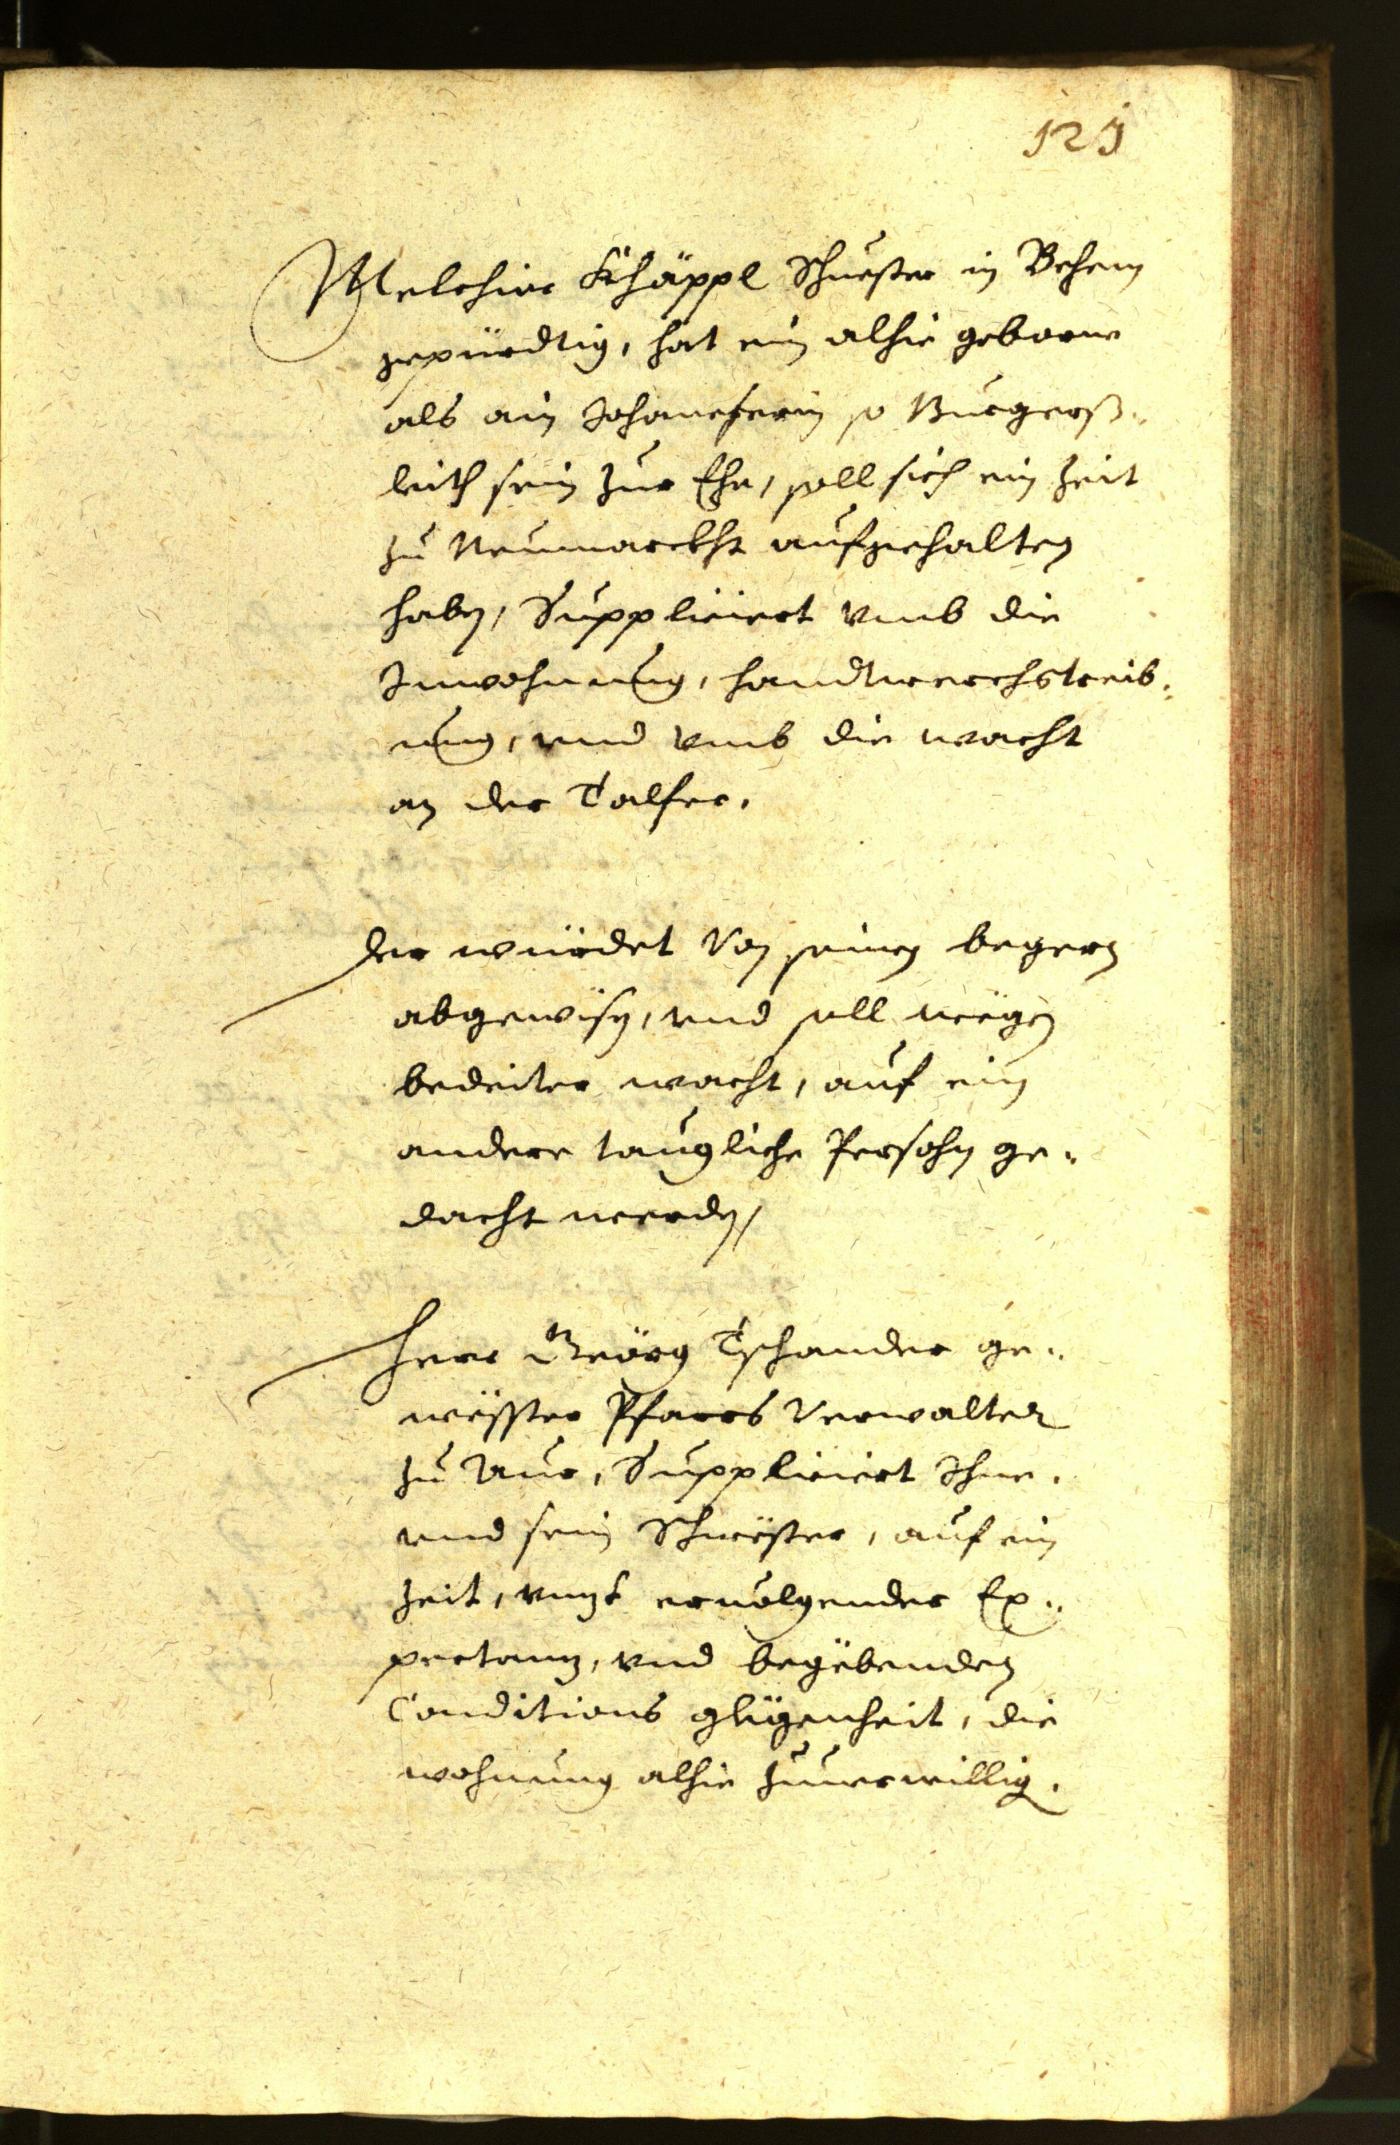 121
Melchior Khäppl Schuester in Behem
gepürdtig, hat ein alhie geborne
als ain Johaneserin so Burgerß¬
leith sein zur Ehe, soll sich ein Zeit
zu Neumarckht aufgehalten
haben, Suppliciert vmb die
Inwohnung, handtwerchstreib¬
ung, vnd vmb die wacht
an der Talfer.
der würdet von seinen begern
abgewisen, vnd soll wegen
bedeiter wacht, auf ein
andere taugliche Persohn ge¬
dacht werden,
Herr Geörg Tschander ge¬
wëster Pfarrs Verwalter
zu Aur, Suppliciert Ihme
vnd sein Schwëster, auf ein
Zeit, vnzt eruolgender Ex¬
pectanz, vnd begëbenden
Conditions glëgenheit, die
wohnung alhie zuuerwillig.